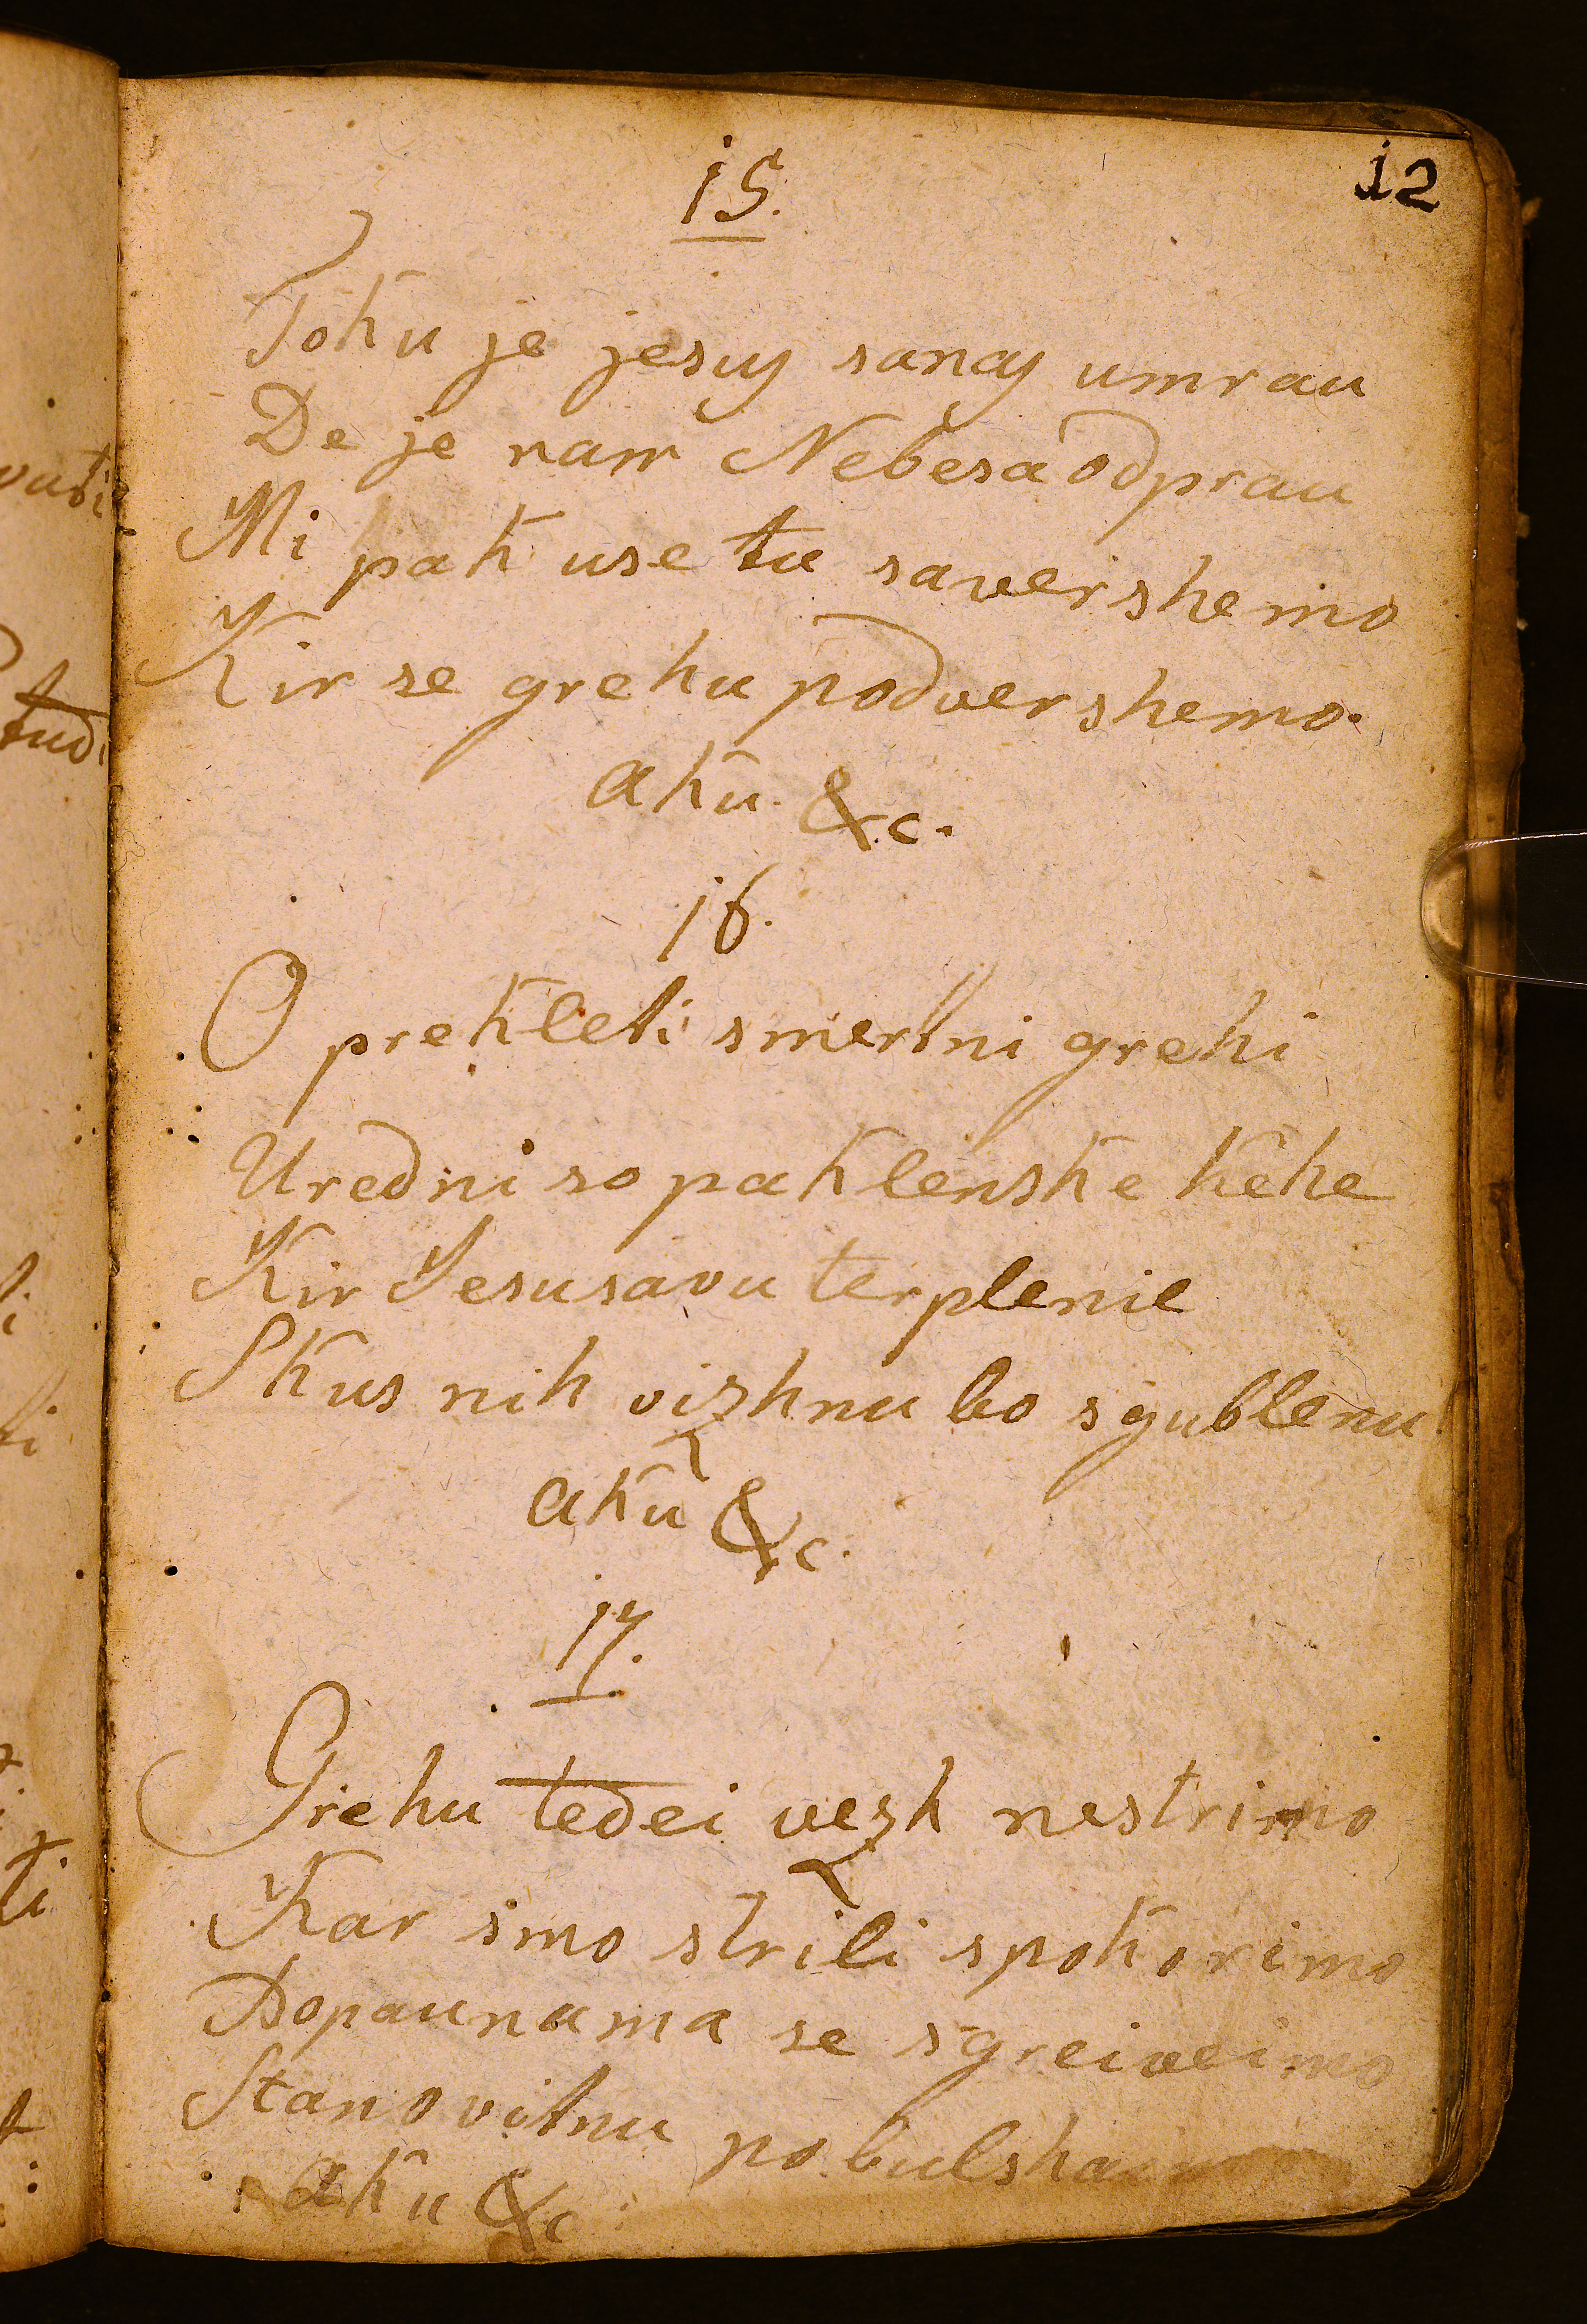 12
15.
Toku je jesus sanas umrau
De je nam Nebesa odprau
Mi pak use tu savershemo
Kir se grehu podvershemo.
aku. &c.
16.
O prekleti smertni grehi
Uredni so paklenske kehe
Kir Jesusavu terplenie
Skus nih vizhnu bo sgublenu
aku &c.
17.
Grehu tedei vezh nestrimo
Kar smo strili spokorimo
Dopaunama se sgreiveimo
Stanovitnu
aku &c